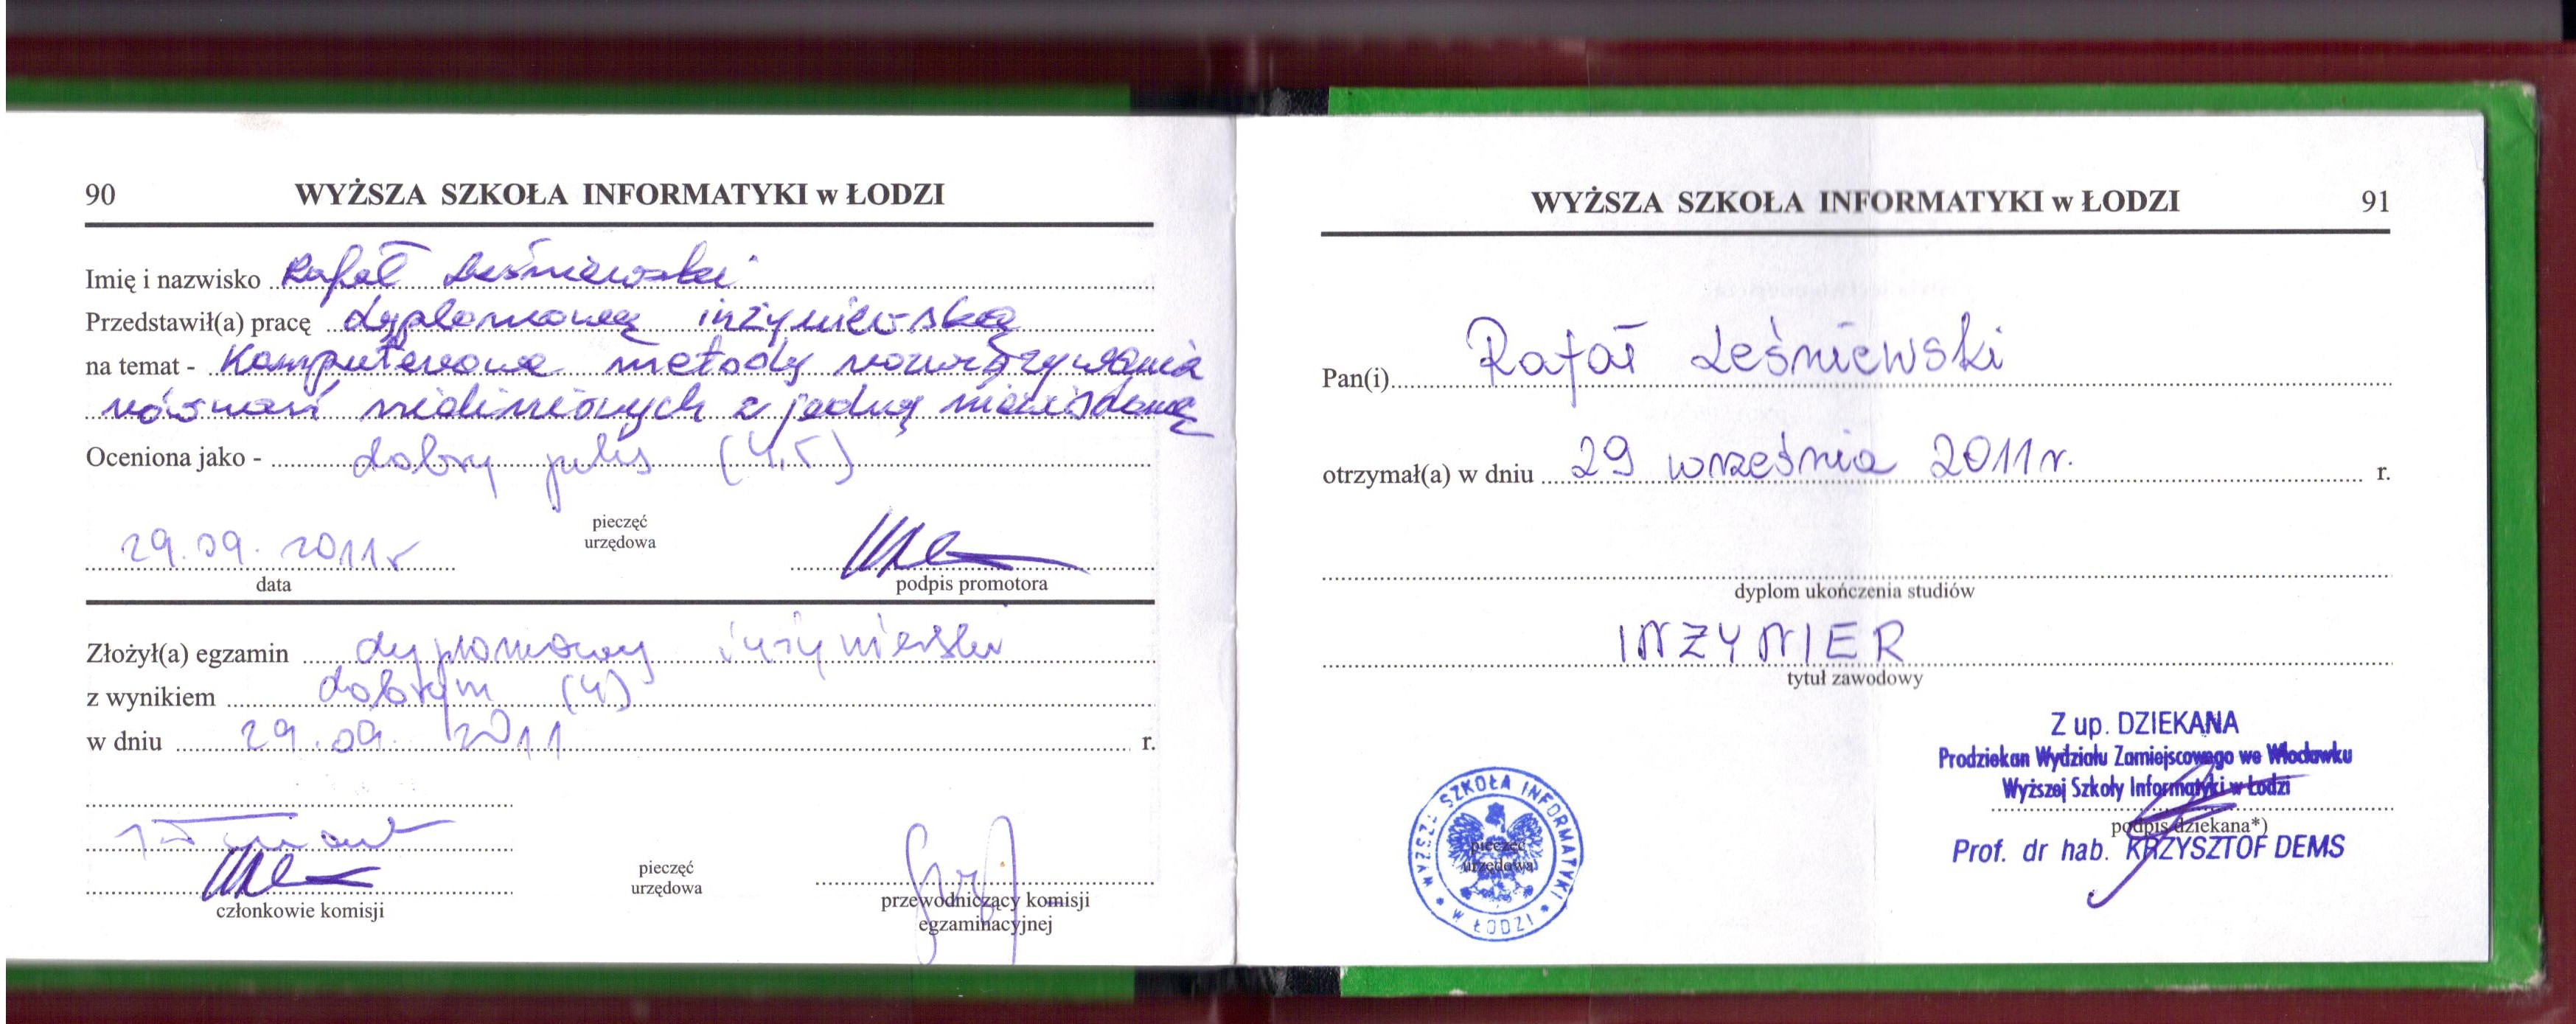 90 WYŻSZA SZKOŁA INFORMATYKI w ŁODZI
Imię i nazwisko Rafał Leśniewski
Przedstawił(a) pracę dyplomową inżynierską
na temat - Komputerowe metody rozwiązywania
równań nieliniowych z jedną niewiadomą
Oceniona jako - dobry plus (4,5)
pieczęć
urzędowa
29.09.2011r
data
podpis promotora
Złożył(a) egzamin dyplomowy inżynierski
z wynikiem dobrym (4)
w dniu 29.09.2011 r.
członkowie komisji
pieczęć
urzędowa
przewodniczący komisji
egzaminacyjnej
WYŻSZA SZKOŁA INFORMATYKI w ŁODZI 91
Pan(i) Rafał Leśniewski
otrzymał(a) w dniu 29 września 2011r. r.
dyplom ukończenia studiów
INŻYNIER
tytuł zawodowy
Z up. DZIEKANA
Prodziekan Wydziału Zamiejscowego we Włocławku
Wyższej Szkoły Informatyki w Łodzi
podpis dziekana*)
Prof. dr hab. KRZYSZTOF DEMS
WYŻSZA SZKOŁA INFORMATYKI
W ŁODZI
pieczęć
urzędowa